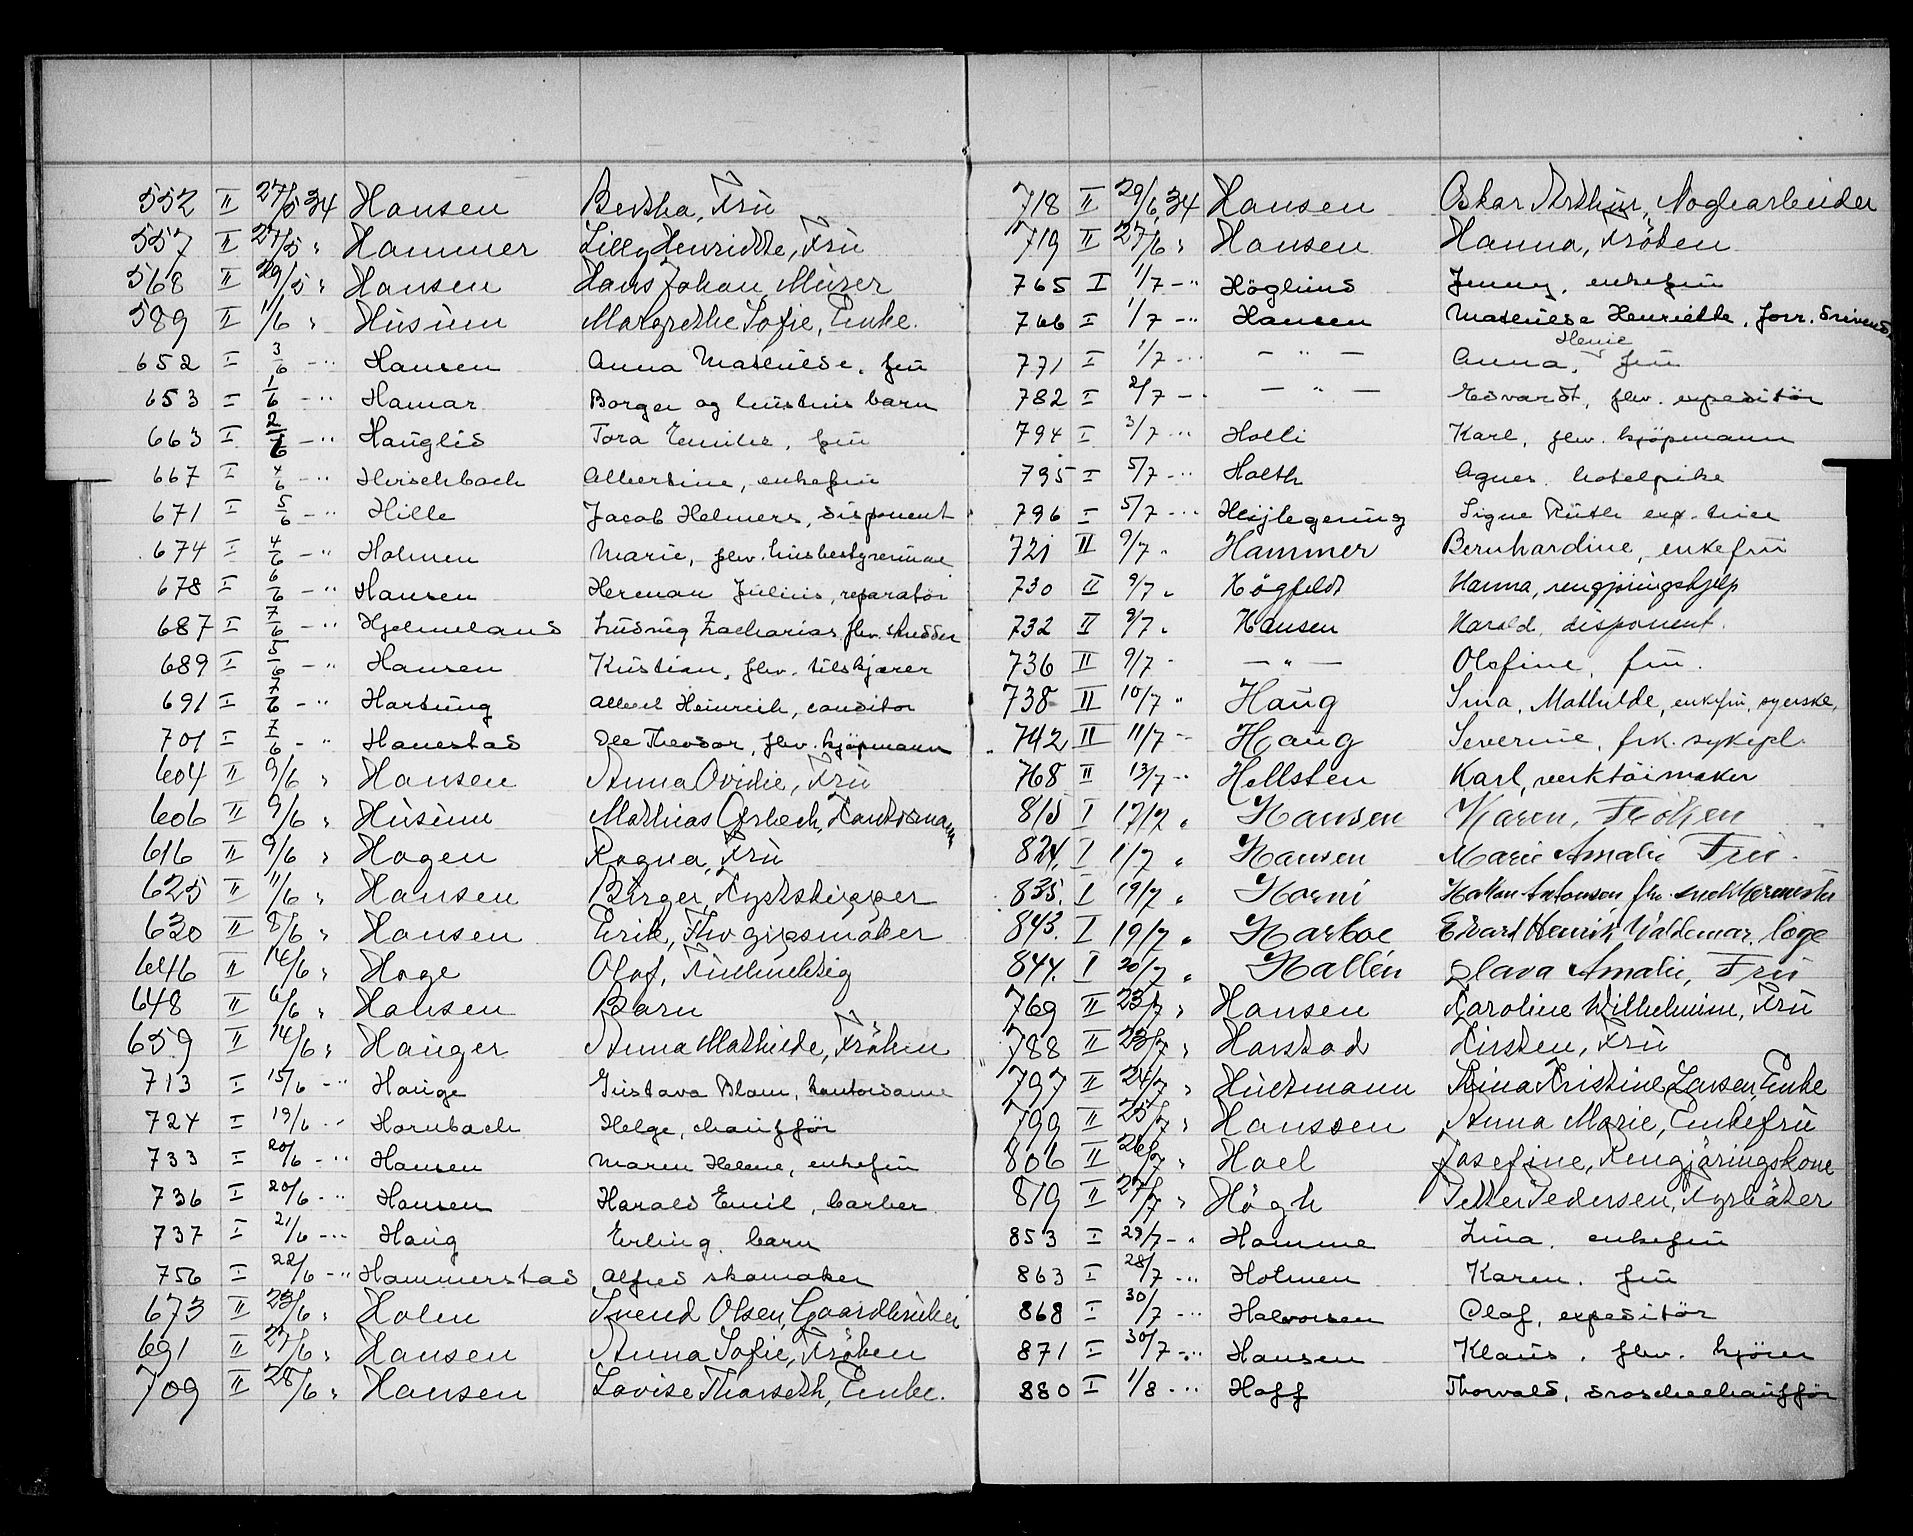 552 II 27/5 34 Hansen Bertha, Fru
557 II 27/5 " Hammer Lilly Henriette, Fru
568 II 29/5 " Hansen Hans Johan Murer
589 II 1/6 " Husum Margrethe Sofie, Enke.
652 I 3/6 -" Hansen Anna Mathilde, fru
653 I 1/6 -" Hamar Borger og hustrus barn
663 I 2/6 -" Hauglid Tora Emilie, fru
667 I 4/6 -" Hirschbach Albertine, enkefru
671 I 5/6 -" Hille Jacob Helmers, disponent
674 I 4/6 -" Holmen Marie, fhv. husbestyrerinne
678 I 6/6 -" Hansen Herman Julius, reparatør
687 I 7/6 -" Hjelmeland Ludvig Zacharias fhv. skredder
689 I 5/6 -" Hansen Kristian, fhv. tilskjærer
691 I 7/6 -" Hartung Albert Heinrich, conditor
701 I 7/6 -" Hanestad Ole Theodor, fhv. kjøpmann
604 II 9/6 " Hansen Anna Ovidie, Fru
606 II 9/6 " Husum Mathias Gerbech, Kontormann
616 II 9/6 " Hagen Ragna, Fru
625 II 11/6 " Hansen Birger, Kystskipper
630 II 8/6 " Hansen Erik, Fhv gipsmaker
646 II 14/6 " Hage Olaf, Fuldmektig
648 II 6/6 " Hansen Barn
659 II 14/6 " Hauger Anna Mathilde, Frøken
713 I 15/6 -" Hauge Gustava Blom, kontordame
724 I 19/6 -" Hornbach Helge, chauffør
733 I 20/6 -" Hansen Maren Helene, enkefru
736 I 20/6 -" Hansen Harald Emil, barber.
737 I 21/6 -" Haug Erling. barn
756 I 22/6 -" Hammerstad Alfred skomaker
673 II 23/6 " Holm Svend Olsen, Gaardbruker
691 II 27/6 " Hansen Anna Sofie, Frøken
709 II 28/6 " Hansen Lovise Tharseth, Enke.
718 II 29/6 34 Hansen Oskar Arthur, Naglearbeider
719 II 27/6 " Hansen Hanna, Frøken
765 I 1/7 -" Höglund Jenny, enkefru
766 I 1/7 -" Hansen Mathilde Henriette, forr. drivende
771 I 1/7 -" - " - Anna, Henie fru
782 I 2/7 -" - " - Edvardt, fhv. expeditør
794 I 3/7 -" Holli Karl, fhv. kjøpmann
795 I 5/7 -" Holth Agnes. hotelpike
796 I 5/7 -" Heijlegering Signe Ruth exp. trice
721 II 9/7 " Hammer Bernhardine, enkefru
730 II 9/7 " Högfeldt Hanna, rengjøringshjelp
732 II 9/7 " Hansen Harald, disponent.
736 II 9/7 - - " - Olefine, fru.
738 II 10/7 " Haug Sina, Mathilde, enkefru, syerske,
742 II 11/7 -" Haug Severine, frk. sykepl.
768 II 13/7 -" Hellsten Karl, verktøimaker
815 I 17/7 " Hansen Karen, Frøken
824. I 1/7 " Hansen Marie Amalie Fru.
835. I 19/7 " Horni Hakon Antonsen fhv. snekkermester
843. I 19/7 " Harboe Edvard Henrik Valdemar, læge
844. I 20/7 " Hallén Slava Amalie, Fru
769 II 23/7 " Hansen Karoline Wilhelmine, Fru
788 II 23/7 " Harstad Kirsten, Fru
797 II 24/7 " Huitmann Stina Kristine Larsen, Enke
799 II 25/7 " Hanssen Anna Marie, Enkefru
806 II 26/7 " Hoel Josefine, Rengjøringskone
819 II 27/7 " Högh Petter Pedersen, Fyrbøter
853 I 29/7 -" Hamme Lina. enkefru
863 I 28/7 -" Holmen Karen. fru
868 I 30/7 -" Halvorsen Olaf, expeditør
871 I 30/7 -" Hansen Klaus. fhv. kjører
880 I 1/8 -" Hoff Thorvald, droschechauffør